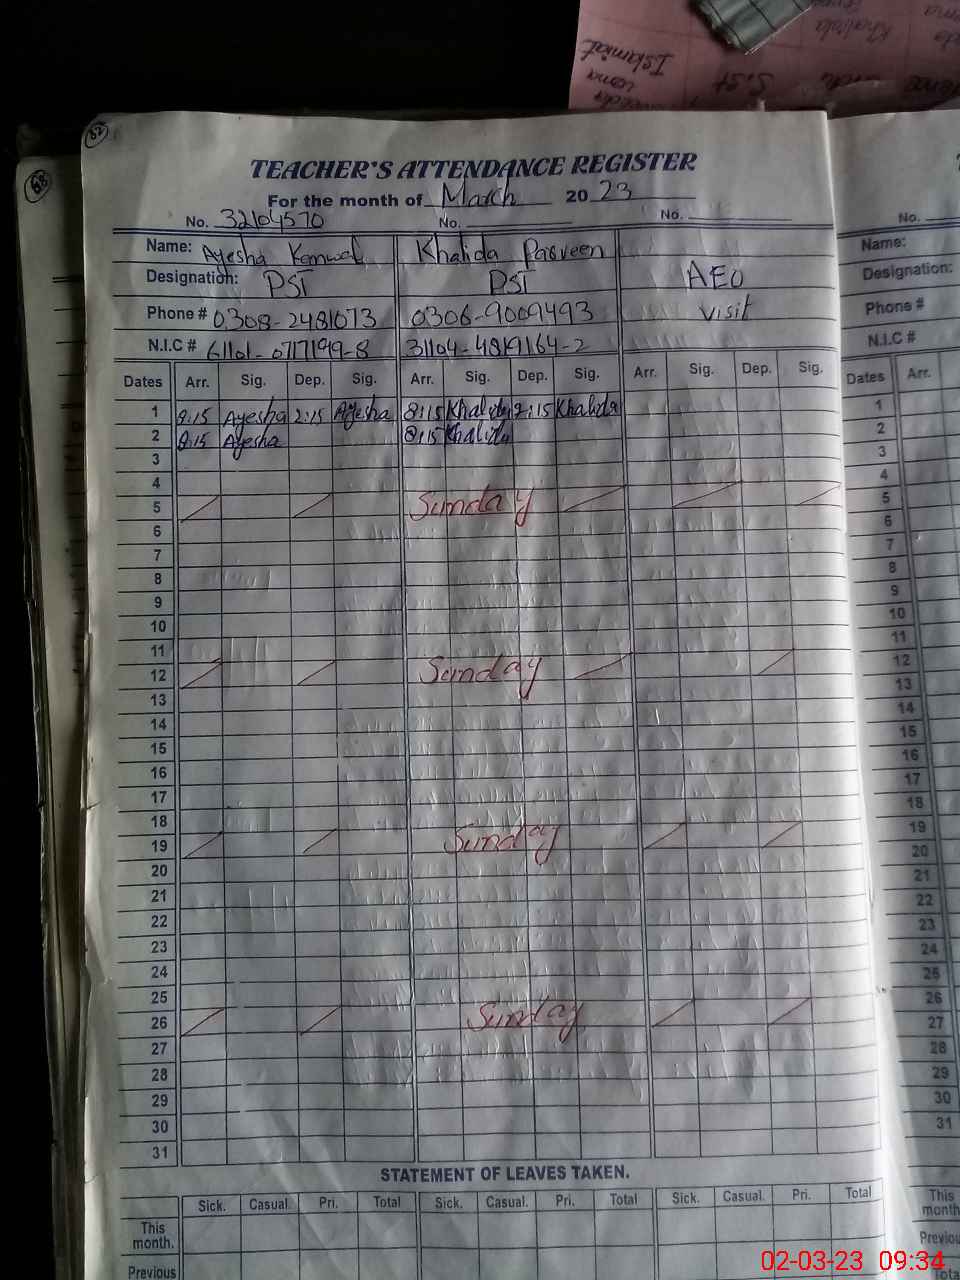 Khalida
Islamiat
S.St
82
68
TEACHER'S ATTENDANCE REGISTER
For the month of March 2023
No. 32104570 No. No. No.
Name: Ayesha Kanwal Khalida Parveen Name:
Designation: PST PST AEO Designation:
Phone # 0308-2481073 0306-9009493 visit Phone #
N.I.C # 61101-0717199-8 31104-4819164-2 N.I.C #
Dates Arr. Sig. Dep. Sig. Arr. Sig. Dep. Sig. Arr. Sig. Dep. Sig. Dates Arr.
1 8:15 Ayesha 2:15 Ayesha 8:15 Khalida 2:15 Khalida 1
2 8:15 Ayesha 8:15 Khalida 2
3 3
4 4
5 Sunday 5
6 6
7 7
8 8
9 9
10 10
11 11
12 Sunday 12
13 13
14 14
15 15
16 16
17 17
18 18
19 Sunday 19
20 20
21 21
22 22
23 23
24 24
25 25
26 Sunday 26
27 27
28 28
29 29
30 30
31 31
STATEMENT OF LEAVES TAKEN.
Sick. Casual. Pri. Total Sick. Casual. Pri. Total Sick. Casual. Pri. Total
This month. This month
Previous Previou
Tota
02-03-23 09:34